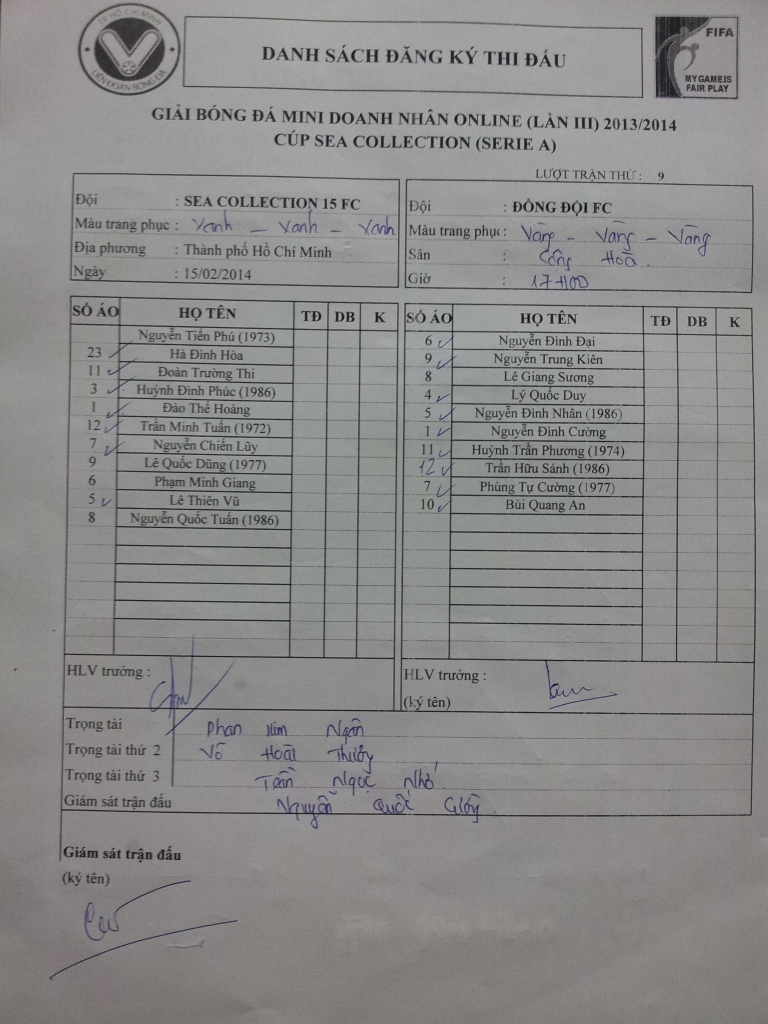 TP HỒ CHÍ MINH
LIÊN ĐOÀN BÓNG ĐÁ
DANH SÁCH ĐĂNG KÝ THI ĐẤU
FIFA
MY GAME IS
FAIR PLAY
GIẢI BÓNG ĐÁ MINI DOANH NHÂN ONLINE (LẦN III) 2013/2014
CÚP SEA COLLECTION (SERIE A)
LƯỢT TRẬN THỨ : 9
Đội : SEA COLLECTION 15 FC
Màu trang phục : Xanh - Xanh - Xanh
Địa phương : Thành phố Hồ Chí Minh
Ngày : 15/02/2014
Đội : ĐỒNG ĐỘI FC
Màu trang phục : Vàng - Vàng - Vàng
Sân : Cộng Hoà.
Giờ : 17H00
SỐ ÁO HỌ TÊN TĐ DB K
Nguyễn Tiến Phú (1973)
23 Hà Đình Hòa
11 Đoàn Trường Thi
3 Huỳnh Đình Phúc (1986)
1 Đào Thế Hoàng
12 Trần Minh Tuấn (1972)
7 Nguyễn Chiến Lũy
9 Lê Quốc Dũng (1977)
6 Phạm Minh Giang
5 Lê Thiên Vũ
8 Nguyễn Quốc Tuấn (1986)
SỐ ÁO HỌ TÊN TĐ DB K
6 Nguyễn Đình Đại
9 Nguyễn Trung Kiên
8 Lê Giang Sương
4 Lý Quốc Duy
5 Nguyễn Đình Nhân (1986)
1 Nguyễn Đình Cường
11 Huỳnh Trần Phương (1974)
12 Trần Hữu Sánh (1986)
7 Phùng Tự Cường (1977)
10 Bùi Quang An
HLV trưởng :
HLV trưởng :
(ký tên)
Trọng tài Phan Kim Ngân
Trọng tài thứ 2 Võ Hoài Thương
Trọng tài thứ 3 Trần Ngọc Nhớ
Giám sát trận đấu Nguyễn Quốc
Giám sát trận đấu
(ký tên)